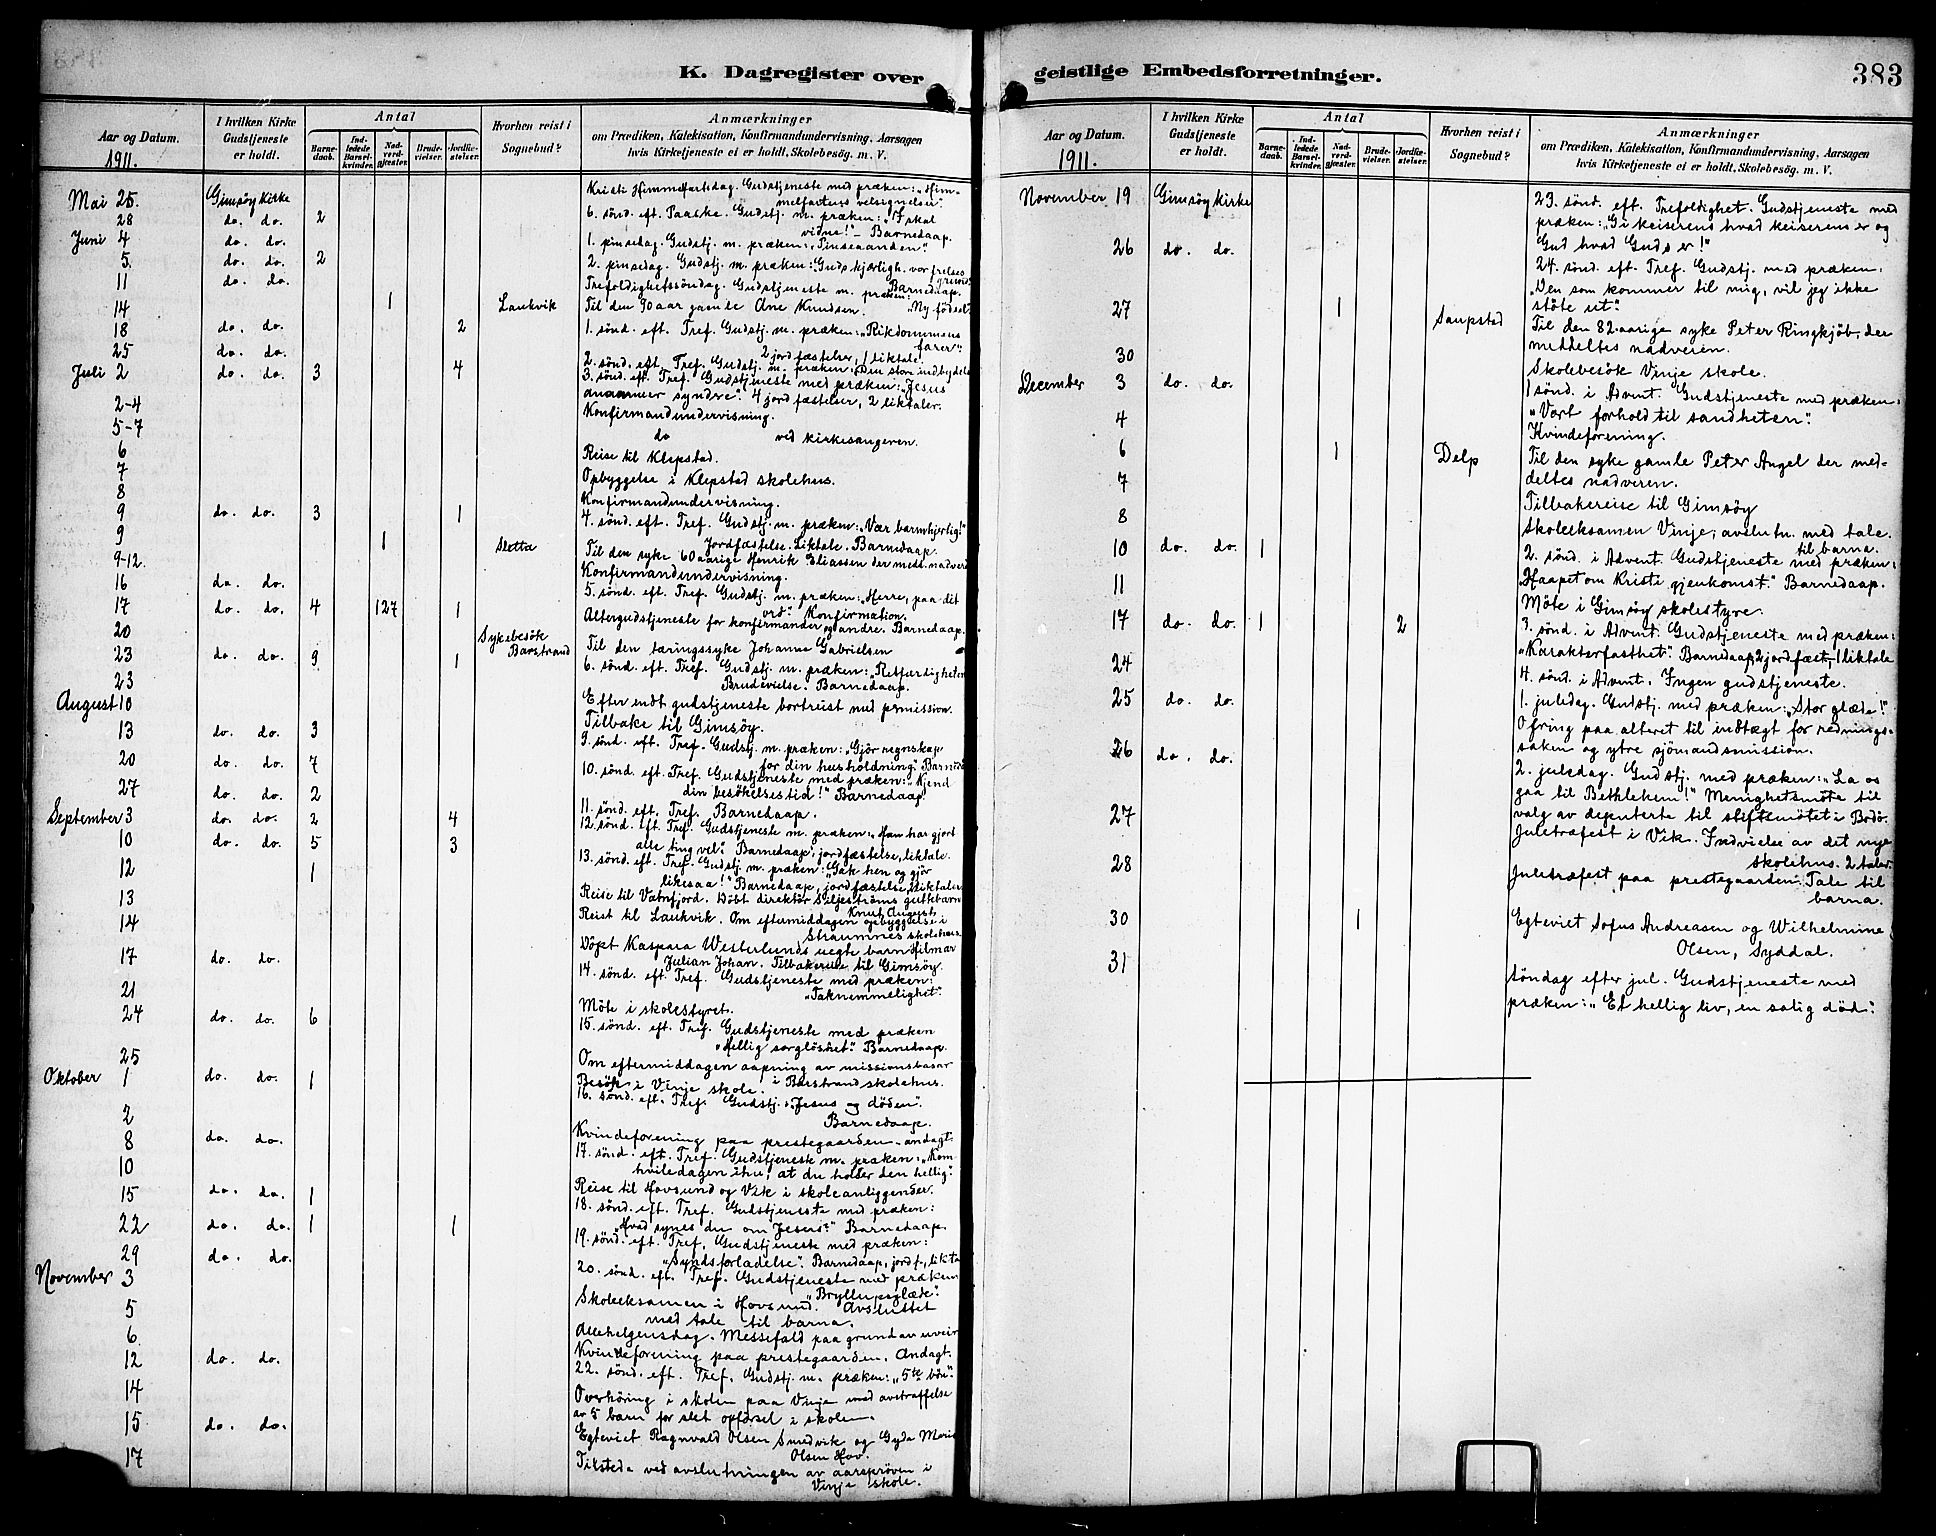 K. Dagregister over
Aar og Datum.
1911.
I hvilken Kirke Gudstjeneste er holdt.
Antal
Barnedaab.
Indledede Barselkvinder.
Nadverdgjæster.
Brudevielser.
Jordfæstelser.
Hvorhen reist i Sognebud?
Anmærkninger
om Prædiken, Katekisation, Konfirmandundervisning, Aarsagen
hvis Kirketjeneste ei er holdt, Skolebesøg. m. V.
Mai 25. Gimsöy Kirke Kristi Himmelfartsdag. Gudstjeneste med præken: „Himmelfartens velsignelser."
28 do. do. 2 6. sönd. eft. Paaske. Gudstj. m. præken: „I skal
vidne!" – Barnedaap.
Juni 4 do. do. 1. pinsedag. Gudstj. m. præken: „Pinseaanden".
5. do. do. 2 2. pinsedag. Gudstj. m. præken: Guds kjærligh. vor frelses
grund. Barnedaap.
11 do. do. Trefoldighetssöndag. Gudstjeneste m. præken:
„Ny födsel."
14 1 Laukvik Til den 90 aar gamle Ane Knudsen.
18 do. do. 2 1. sönd. eft. Tref. Gudstj. m. præken: „Rikdommens
farer". 2 jordfæstelser, 1 liktale.
25 do. do. 2. sönd. eft. Tref. Gudstj. m. præken: „Den store indbydelse
Juli 2 do. do. 3 4 3. sönd. eft. Tref. Gudstjeneste med præken: „Jesus
anammer syndere". 4 jordfæstelser, 2 liktaler.
2-4 Konfirmandundervisning.
5-7 do ved kirkesangeren.
6 Reise til Klepstad.
7 Opbyggelse i Klepstad skolehus.
8 Konfirmandundervisning.
9 do. do. 3 1 4. sönd. eft. Tref. Gudstj. m. præken: „Vær barmhjertig!"
Jordfæstelse. Liktale. Barnedaap.
9 1 Sletta Til den syke 60 aarige Henrik Eliassen der medd. nadverd
9-12. Konfirmandundervisning.
16 do. do. 5. sönd. eft. Tref. Gudstj. m. præken: „Herre, paa dit
ord". Konfirmation.
17 do. do. 4 127 1 Altergudstjeneste for konfirmander og andre. Barnedaap.
20 Sykebesök Barstrand Til den tæringssyke Johanna Gabrielsen
23 do. do. 9 1 6. sönd. eft. Tref. Gudstj. m. præken: „Retfærdigheten
Brudevielse. Barnedaap.
23 Efter endt gudstjeneste bortreist med permission.
August 10 Tilbake til Gimsöy.
13 do. do. 3 9. sönd. eft. Tref. Gudstj. m. præken: „Gjör regnskap
for din husholdning." Barneda
20 do. do. 7 10. sönd. eft. Tref. Gudstjeneste med præken: „Kjend
din besökelsestid!" Barnedaap
27 do. do. 2 11. sönd. eft. Tref. Barnedaap.
September 3 do. do. 2 4 12. sönd. eft. Tref. Gudstjeneste m. præken: „Han har gjort
alle ting vel". Barnedaap, jordfæstelse, liktale.
10 do. do. 5 3 13. sönd. eft. Tref. Gudstj. m. præken: „Gak hen og gjör
likesaa!" Barnedaap, jordfæstelse, liktaler
12 1 Reise til Vatnfjord. Döbt direktör Siljeströms guttebarn
Knut August
13 Reist til Laukvik. Om eftermiddagen opbyggelse i
Straumnes skolehus.
14 Döpt Kaspara Westerlunds uegte barn Hilmar
Julian Johan. Tilbakereise til Gimsöy.
17 do. do. 14. sönd. eft. Tref. Gudstjeneste med præken:
„Taknemmelighet".
21 Möte i skolestyret.
24 do. do. 6 15. sönd. eft. Tref. Gudstjeneste med præken
„Hellig sorglöshet". Barnedaap.
Om eftermiddagen aapning av missionsbasar
i Barstrand skolehus.
25 Besök i Vinje skole.
Oktober 1 do. do. 1 16. sönd. eft. Tref. Gudstj. „Jesus og döden".
Barnedaap.
2 Kvindeforening paa prestegaarden – andagt.
8 do. do. 17. sönd. eft. Tref. Gudstjeneste m. præken: „Kom
hviledagen ihu, at du holder den hellig".
10 Reise til Hovsund og Vik i skoleanliggender.
15 do. do. 1 18. sönd. eft. Tref. Gudstjeneste med præken:
„Hvad synes du om Jesus?" Barnedaap.
22 do. do. 1 1 19. sönd. eft. Tref. Gudstjeneste med præken:
„Syndsforladelse". Barnedaap, jordf., likta
29 do. do. 20. sönd. eft. Tref. Gudstjeneste med præken
„Bryllupsglæde".
November 3 Skoleeksamen i Hovsund. Avsluttet
med tale til barna.
5 Allehelgensdag. Messefald paa grund av uveir
6 Kvindeforening paa prestegaarden. Andagt.
12 do. do. 22. sönd. eft. Tref. Gudstj. m. præken: „5te bön".
14 Overhöring i skolen paa Vinje med avstraffelse
av 5 barn for slet opförsel i skolen.
15 do. do. Egteviet Ragnvald Olsen Smedvik og Gyda Marie
Olsen Hov.
17 Tilstede ved avslutningen av aarspröven i
Vinje skole.
geistlige Embedsforretninger.
383
Aar og Datum.
1911.
I hvilken Kirke Gudstjeneste er holdt.
Antal
Barnedaab.
Indledede Barselkvinder.
Nadverdgjæster.
Brudevielser.
Jordfæstelser.
Hvorhen reist i Sognebud?
Anmærkninger
om Prædiken, Katekisation, Konfirmandundervisning, Aarsagen
hvis Kirketjeneste ei er holdt, Skolebesøg. m. V.
November 19 Gimsöy kirke 23. sönd. eft. Trefoldighet. Gudstjeneste med
præken: „Gi keiserens hvad keiserens er og
Gud hvad Guds er!"
26 do. do. 24. sönd. eft. Tref. Gudstj. med præken:
„Den som kommer til mig, vil jeg ikke
stöte ut".
27 1 Saupstad Til den 82-aarige syke Peter Ringkjöb, der
meddeltes nadveren.
30 Skolebesök Vinje skole.
December 3 do. do. 1 sönd. i Advent. Gudstjeneste med præken:
„Vort forhold til sandheten".
4 Kvindeforening.
6 1 Delp Til den syke gamle Peter Angel der meddeltes nadveren.
7 Tilbakereise til Gimsöy
8 Skoleeksamen Vinje; avslutn. med tale
til barna.
10 do. do. 1 2. sönd. i Advent. Gudstjeneste med præken:
„Haapet om Kristi gjenkomst." Barnedaap.
11 Möte i Gimsöy skolestyre.
17 do. do. 1 2 3. sönd. i Advent. Gudstjeneste med præken:
„Karakterfasthet". Barnedaap, 2 jordfæst, 1 liktale
24 4. sönd. i Advent. Ingen gudstjeneste.
25 do. do. 1. juledag. Gudstj. med præken: „Stor glæde!"
Ofring paa alteret til indtægt for redningssaken og ytre sjömandsmission.
26 do. do. 2. juledag. Gudstj. med præken: „La os
gaa til Bethlehem!" Menighetsmöte til
valg av deputerte til stiftsmötet i Bodö.
27 Juletræfest i Vik. Indvielse av det nye
skolehus. 2 taler
28 Juletræfest paa prestegaarden. Tale til
barna.
30 1 Egteviet Sofus Andreasen og Wilhelmine
Olsen, Syddal.
31 Söndag efter jul. Gudstjeneste med
præken: „Et hellig liv, en salig död".